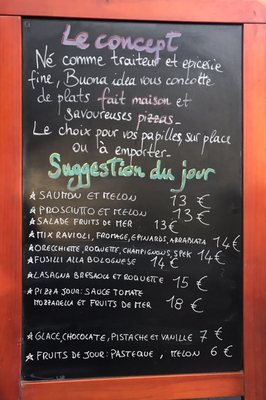 Le concept
Né comme traiteur et epicerie
fine, Buona idea vous concocte
de plats fait maison et
savoureuses pizzas_
Le choix pour vos papilles, sur place
ou à emporter_
Suggestion du jour
★ SAUMON ET MELON 13 €
★ PROSCIUTTO ET MELON 13 €
★ SALADE FRUITS DE MER 13 €
★ MIX RAVIOLI, FROMAGE, EPINARDS, ARRABIATA 14 €
★ ORECCHIETTE, ROQUETTE, CHAMPIGNONS, SPEK 14 €
★ FUSILLI ALLA BOLOGNESE 14 €
★ LASAGNA BRESAOLA ET ROQUETTE 15 €
★ PIZZA JOUR: SAUCE TOMATE
MOZZARELLA ET FRUITS DE MER 18 €
★ GLACE, CHOCOLATE, PISTACHE ET VANILLE 7 €
★ FRUITS DE JOUR: PASTEQUE, MELON 6 €